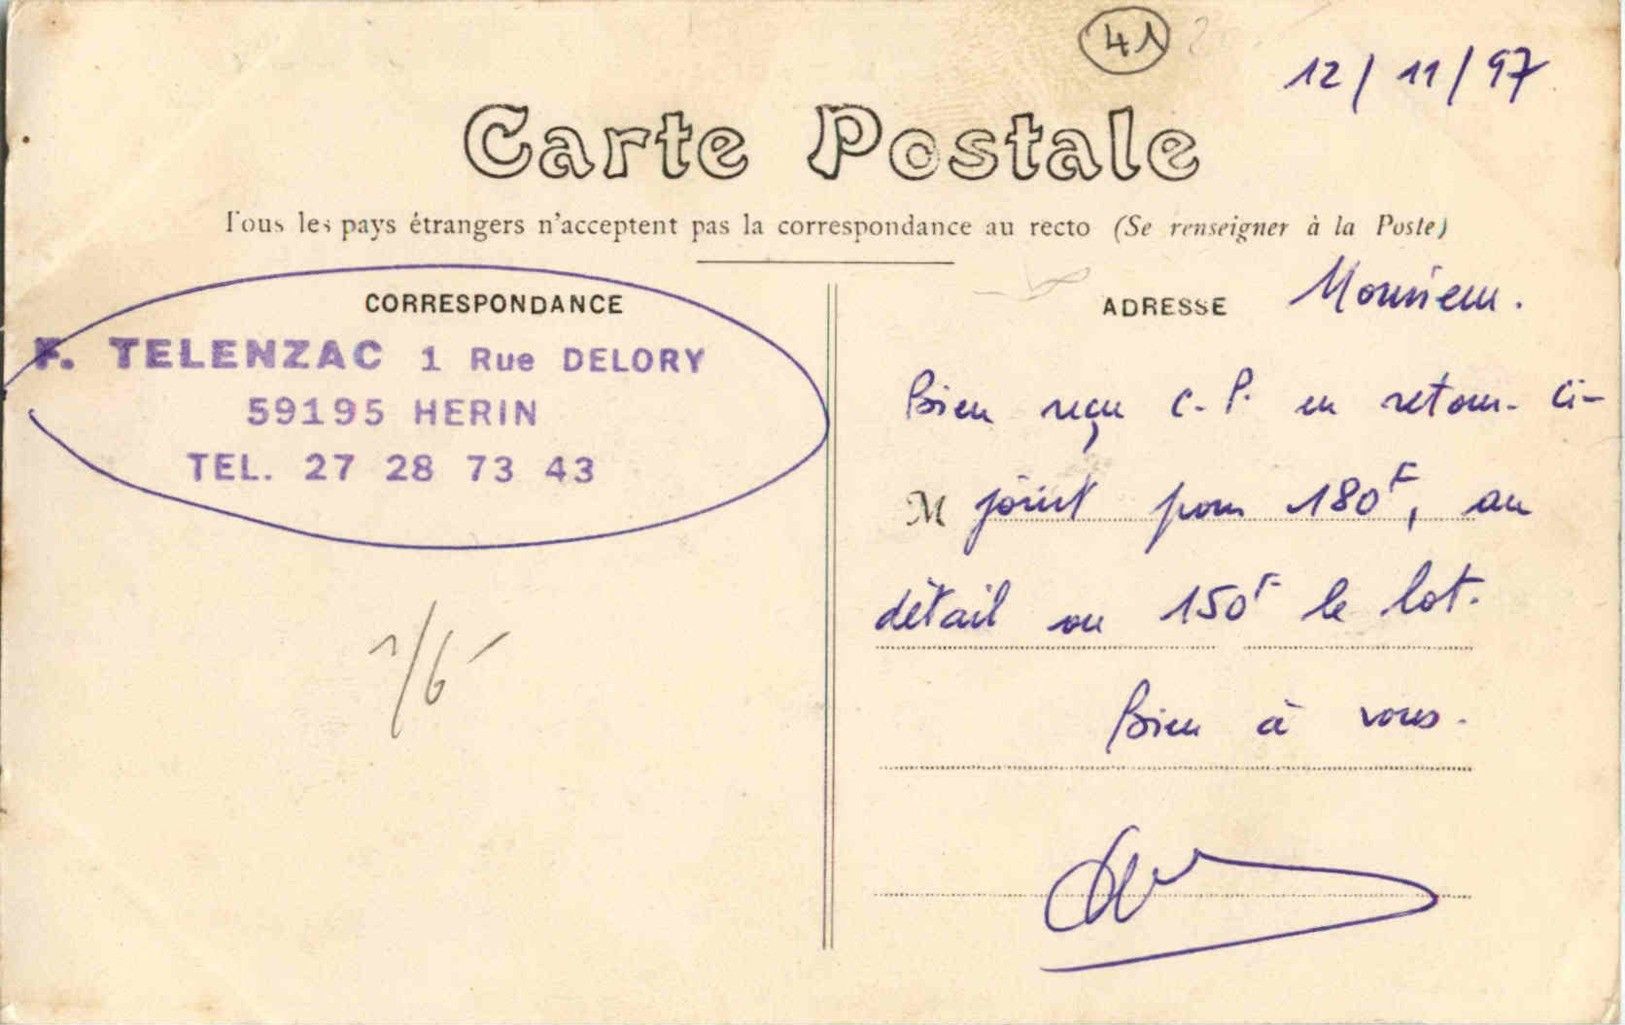 41
12/11/97
Carte Postale
Tous les pays étrangers n'acceptent pas la correspondance au recto (Se renseigner à la Poste)
CORRESPONDANCE
F. TELENZAC 1 Rue DELORY
59195 HERIN
TEL. 27 28 73 43
ADRESSE
Monsieur.
Bien reçu C.P. en retour ci-
M joint pour 180F, au
détail ou 150F le lot.
Bien à vous.